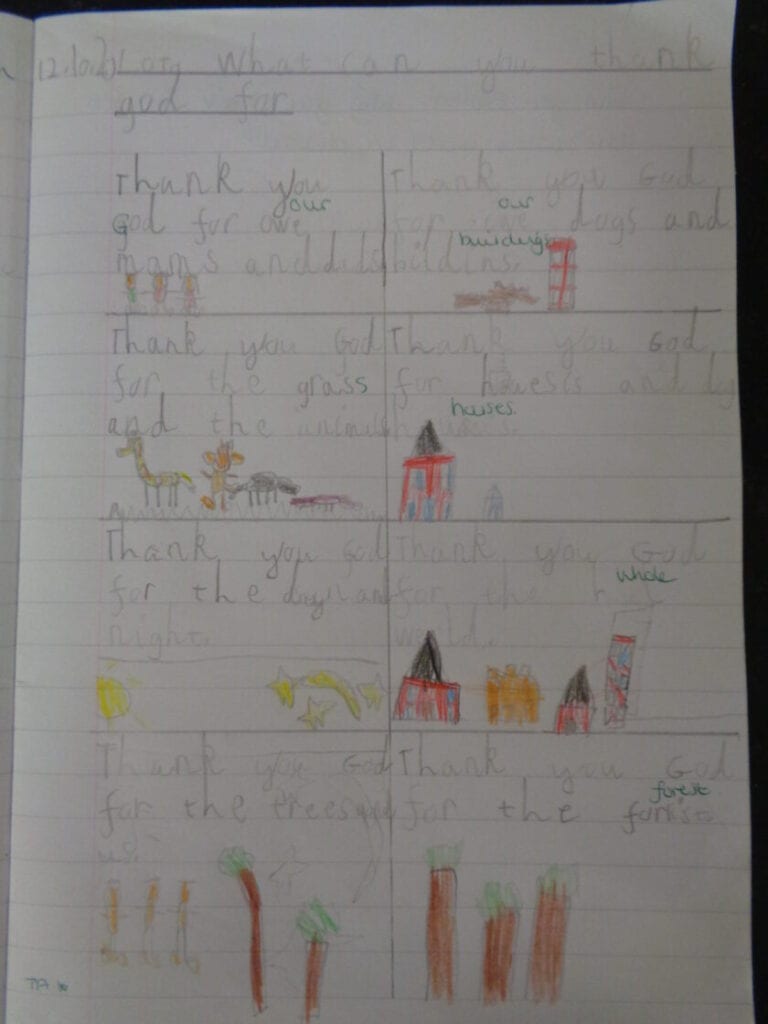 what can you thank
god for
Thank you
our
God for owe
mams and dads
Thank you God
our
for owe dogs and
buildings
bildins.
Thank you God
for the grass
and the animals
Thank you God
for and
houses.
Thank you God
for the and
night.
Thank you God
whole
for the
world.
Thank you God
for the trees and
us.
Thank you God
forest
for the